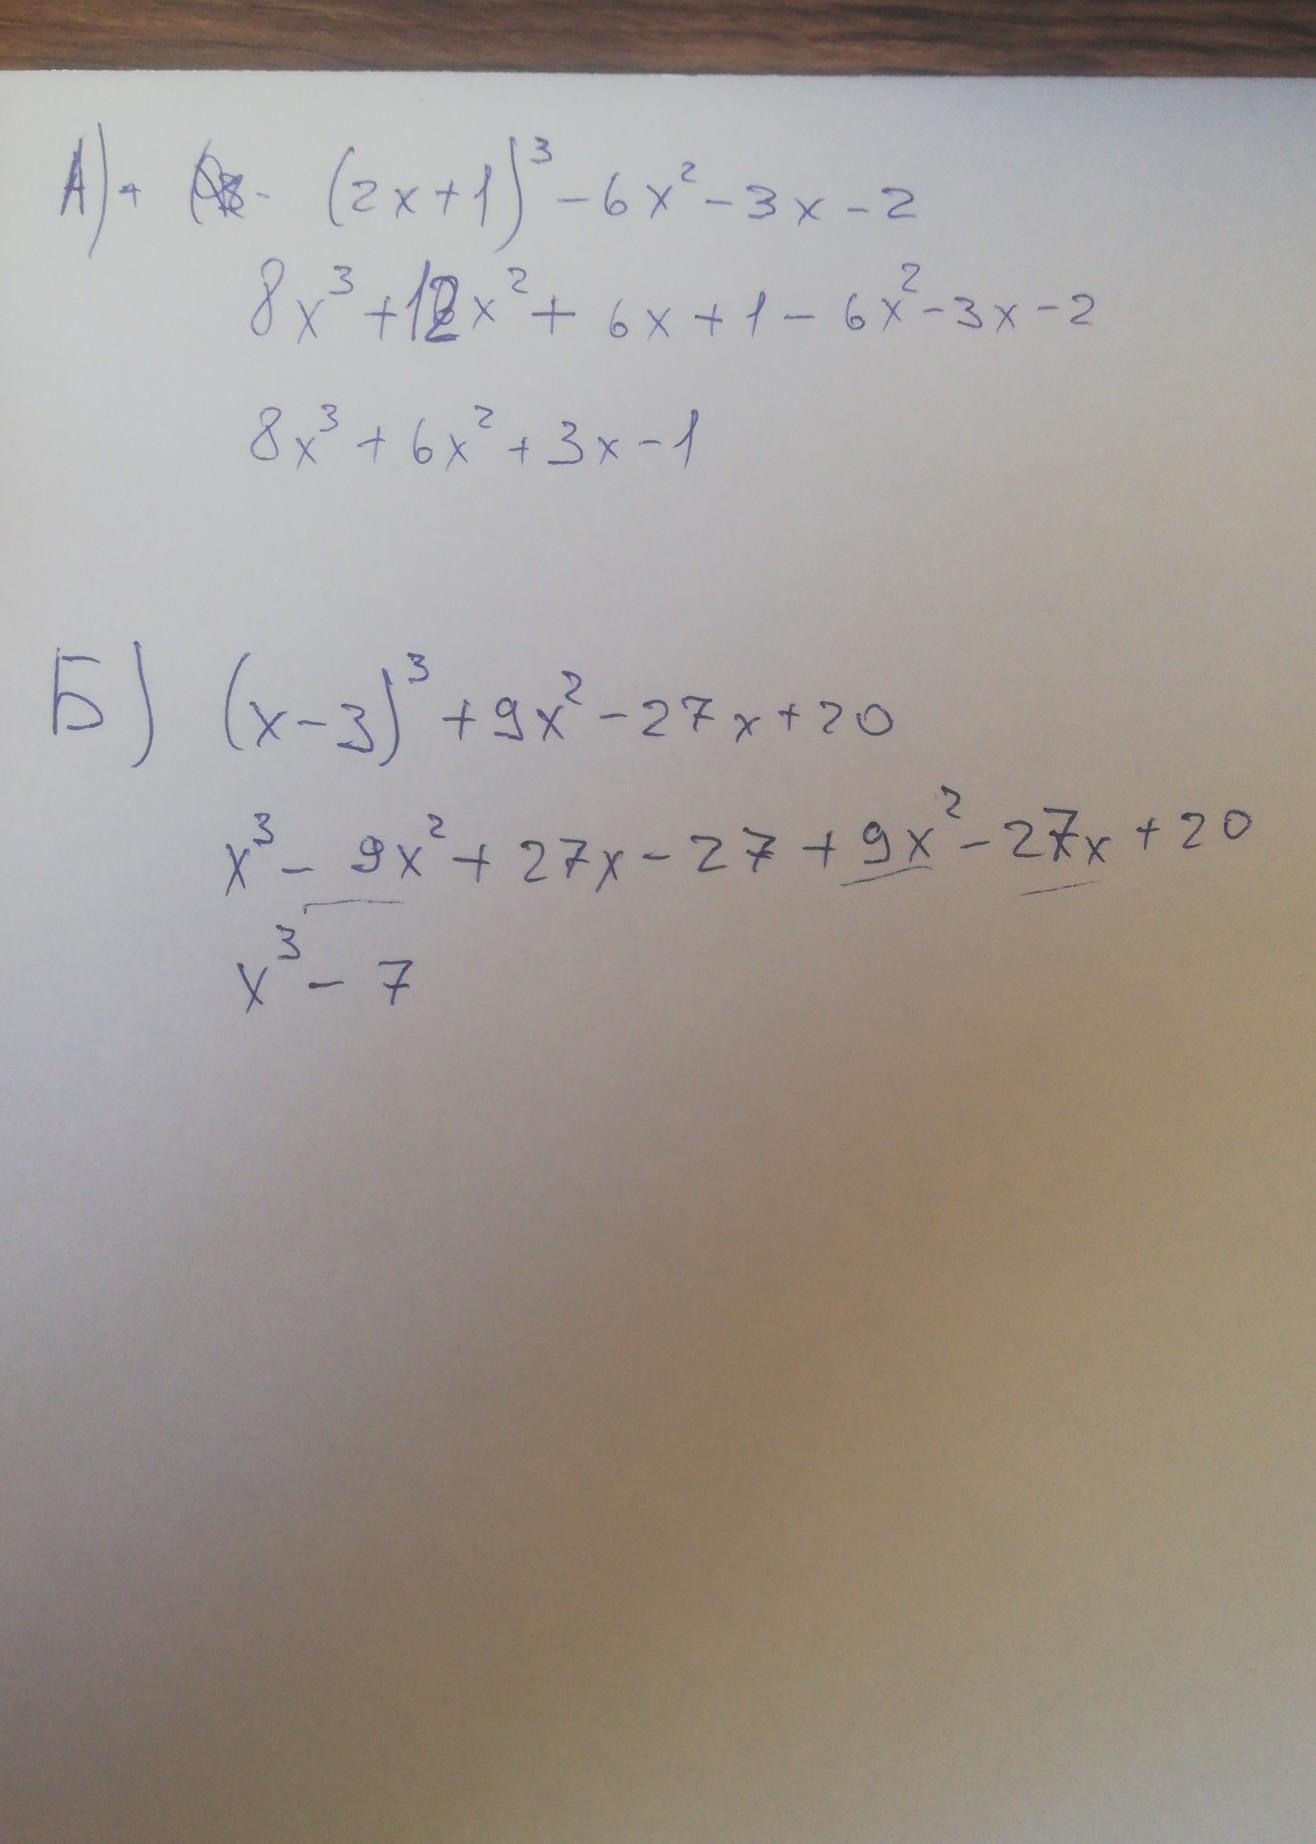 А) (2x+1)³-6x²-3x-2
8x³+12x²+6x+1-6x²-3x-2
8x³+6x²+3x-1
Б) (x-3)³+9x²-27x+20
x³-9x²+27x-27+9x²-27x+20
x³-7